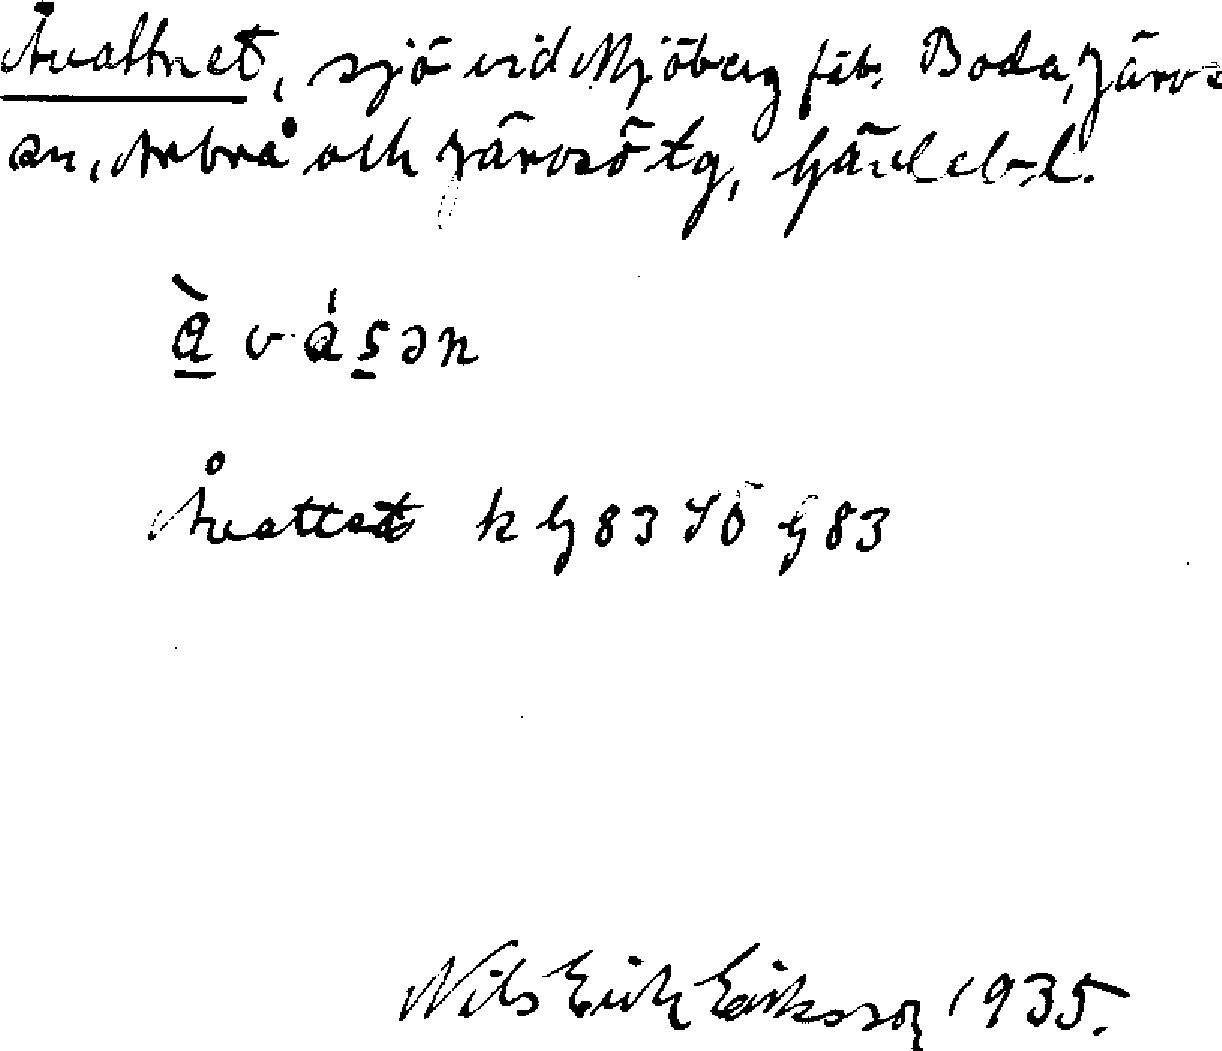 Åvattnet, sjö vid Mjöberg fäb. Boda, Järvs
sn, Arbrå och Järvsö tg, Gävlebl.
à v á s ə n
Åvattnet k G 83 SO G 83
Nils Erik Eriksson 1935.